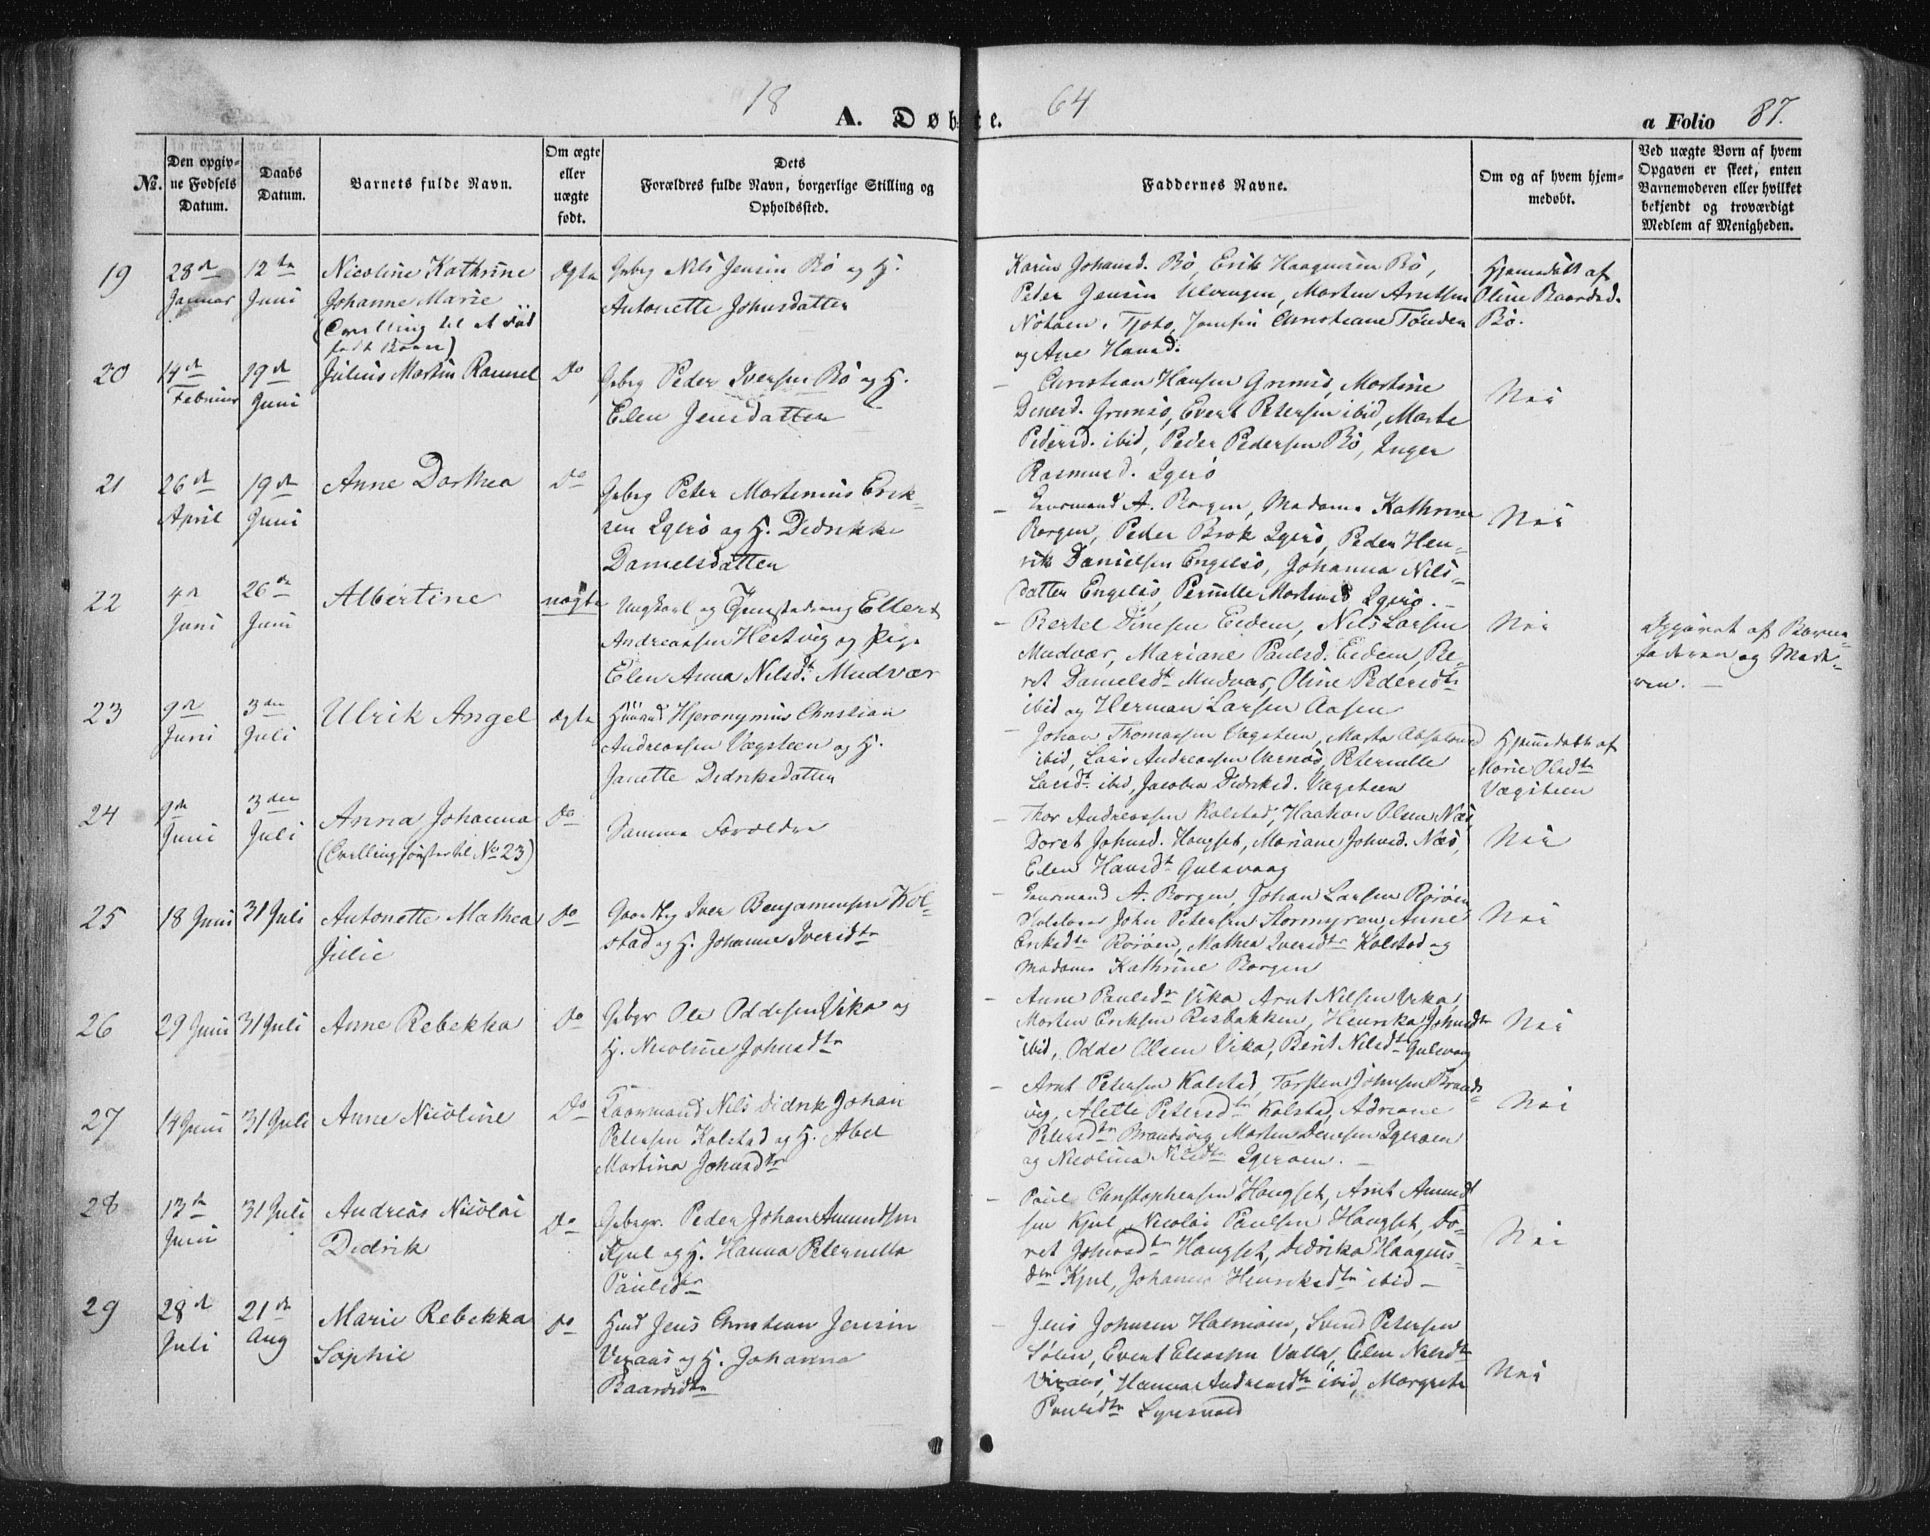 18 64
A. Døbte.
a Folio 87.
No.
Den opgiv-
ne Fødsels
Datum.
Daabs
Datum.
Barnets fulde Navn.
Om ægte
eller
uægte
født.
Dets
Forældres fulde Navn, borgerlige Stilling og
Opholdssted.
Faddernes Navne.
Om og af hvem hjem-
medøbt.
Ved uægte Børn af hvem
Opgaven er skeet, enten
Barnemoderen eller hvilket
bekjendt og troværdigt
Medlem af Menigheden.
19
28de
Januar
12te
Juni
Nicoline Kathrine
Johanne Marie
(Tvilling til et død
født Barn)
Ægte
Gbrg Nils Jensen Bø og H.
Antonette Johnsdatter
Karen Johansd. Bø, Erik Haagensen Bø,
Peder Jensen Ulvengen, Morten Arntsen
Christiane Tønder
og Ane Hansd.
Hjemedøbt af
Oline Baardsd.
Bø.
20
14de
Februar
19de
Juni
Julius Martin
Do
Gbrg Peder Iversen Bø og H.
Elen Jensdatter
Christian Hansen Grimsø, Martine
Grimsø, Evert Petersen ibid, Marte
Pedersd. ibid, Peder Pedersen Bø, Inger
Rasmusd. Igerø
Nei
21
26de
April
19de
Juni
Anne Dorthea
Do
Gbrg Peter Martinius Erik-
sen Igerø og H. Didrikke
Danielsdatter
A. Borgen, Madame Kathrine
Borgen, Peder Brok Igerø, Peder Hen-
rik Danielsen Engelsø, Johanna Nils-
datter Engelsø, Pernille Igerø.
Nei
22
4de
Juni
26de
Juni
Albertine
uægte
Ungkarl og Ellert
Andreassen Hestvig og Pige
Elen Anna Nilsdt. Mudvær
Bertel Dinesen Eidem, Nils Larsen
Mudvær, Mariane Paulsd. Eidem, Be-
ret Danielsdt Mudvær, Oline Pedersdtr
ibid og Herman Larsen Aasen
Nei
Opgivet af Barne-
faderen og Mode-
ren.
23
9de
Juni
3die
Juli
Ulrik Angel
Ægte
Huusmd Hjeronymus Christian
Andreassen Vægsteen og H.
Janette Didriksdatter
Johan Thomassen Vægsteen, Marta Absalonsd
ibid, Lars Andreassen, Peternelle
Larsdt ibid, Jacobea Didriksd. Vægsteen
Hjemedøbt af
Marie Olsdtr
Vægsteen
24
9de
Juni
3die
Juli
Anna Johanna
(Tvillingsøster til No 23)
Do
Samme Forældre
Thor Andreassen Kolstad, Haakon Olsen Næs,
Doret Johnsd. Hougset, Mariane Johnsd. Næs,
Elen Hansdt Gulsvaag
Nei
25
18 Juni
31 Juli
Antonette Mathea
Julie
Do
Gaardbrg Iver Benjaminsen Kol-
stad og H. Johanne Iversdtr
A. Borgen, Johan Larsen Rørøen
John Petersen Stormyren, Anne
Eriksdtr Rørøen, Mathea Iversdtr Kolstad og
Madame Kathrine Borgen
Nei
26
29 Juni
31 Juli
Anne Rebekka
Do
Gbgr Ole Oddesen Vika og
H. Nicoline Johnsdtr
Anne Paulsdr Vika, Arnt Nilsen Vika,
Morten Eriksen Risbakken, Henrika Johnsdtr
ibid, Odde Olsen Vika, Berit Nilsdtr Gulsvaag
Nei
27
14 Juni
31 Juli
Anne Nicoline
Do
Kaarmand Nils Didrik Johan
Petersen Kolstad og H. Abel
Martina Johnsdtr
Arnt Petersen Kolstad, Torsten Johnsen Brands-
vig, Alette Petersdtr Kolstad, Adriane
Petersdtr Brandsvig, Morten Igerøen
og Nicolina Nilsdtr Igerøen.
Nei
28
13de
Juni
31 Juli
Andreas Nicolai
Didrik
Do
Gbgr. Peder Johan Amundsen
Kjul og H. Hanna Peternella
Paulsdtr
Paul Christophersen Hougset, Arnt Amund
sen Kjul, Nicolai Paulsen Hougset, Do-
ret Johnsdtr Hougset, Didrika Haagens-
dtr Kjul, Johanna Henriksdtr ibid
Nei
29
28de
Juli
21de
Aug
Marie Rebekka
Sophie
Do
Husmd Jens Christian Jensen
og H. Johanna
Baardsdtr
Jens Johnsen, Svend Petersen
Evert Eliassen Valla, Elen Nilsdtr
Hanna Andreasdtr ibid, Margrete
Paulsdtr
Nei